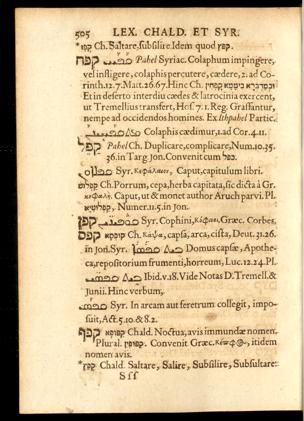 505 LEX. CHALD. ET SYR.
*קפז Ch. Saltare, subsilire. Idem quod קפץ.
קפח Pahel Syriac. Colaphum impingere,
vel infligere, colaphis percutere, cædere, 2. ad Co-
rinth. 12.7. Matt. 26.67. Hinc Ch.
Et in deserto interdiu cædes & latrocinia exercent,
ut Tremellius transfert, Hos. 7.1. Reg. Grassantur,
nempe ad occidendos homines. Ex Ithpahel Partic.
Colaphis cædimur, 1. ad Cor. 4.11.
קפל Pahel Ch. Duplicare, complicare, Num. 10.35.
36. in Targ. Jon. Convenit cum כפל.
Syr. Κεφάλαιον, Caput, capitulum libri.
קפלוט Ch. Porrum, cepa, herba capitata, sic dicta à Gr.
κεφαλή. Caput, ut & monet author Aruch parvi. Pl.
קפלוטיא, Numer. 11.5. in Jon.
קפן Syr. Cophini, Κόφινοι, Græc. Corbes.
קפס Ch. קופסא Κάψα, capsa, arca, cista, Deut. 31.26.
in Jon. Syr. Domus capsæ, Apothe-
ca, repositorium frumenti, horreum, Luc. 12.24. Pl.
Ibid. v. 18. Vide Notas D. Tremell. &
Junii. Hinc verbum,
Syr. In arcam aut feretrum collegit, impo-
suit, Act. 5.10. & 8.2.
קפף קפופא Chald. Noctua, avis immundæ nomen.
Plural. קפופין. Convenit Græc. itidem
nomen avis.
*קפץ Chald. Saltare, Salire, Subsilire, Subsultare:
Sss